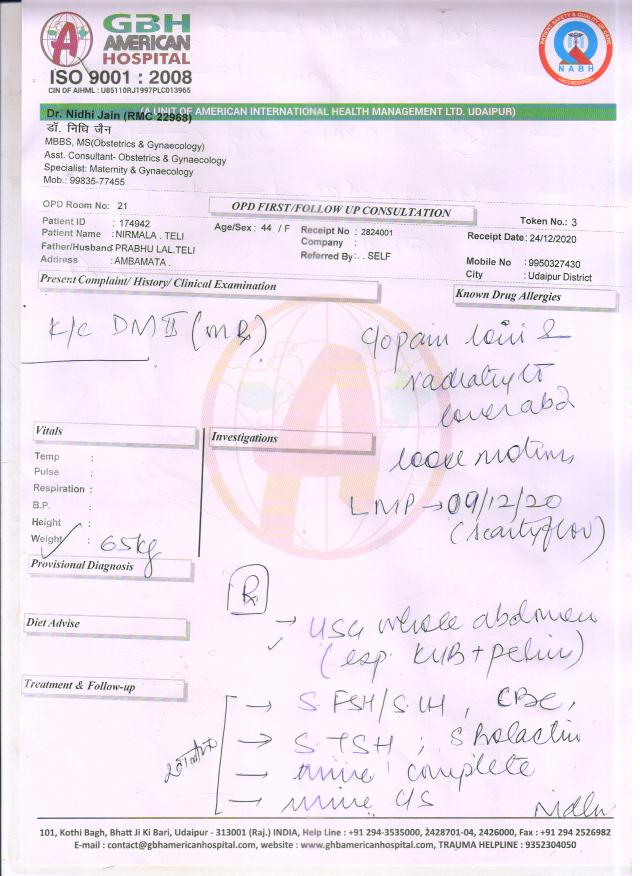 GBH
AMERICAN
HOSPITAL
ISO 9001 : 2008
CIN OF AIHML : U85110RJ1997PLC013965
PATIENT SAFETY & QUALITY OF CARE
NABH
ACCREDITATION
(A UNIT OF AMERICAN INTERNATIONAL HEALTH MANAGEMENT LTD. UDAIPUR)
Dr. Nidhi Jain (RMC 22968)
डॉ. निधि जैन
MBBS, MS(Obstetrics & Gynaecology)
Asst. Consultant- Obstetrics & Gynaecology
Specialist: Maternity & Gynaecology
Mob.: 99835-77455
OPD Room No: 21
OPD FIRST/FOLLOW UP CONSULTATION
Token No.: 3
Patient ID : 174942
Age/Sex : 44 / F
Receipt No : 2824001
Receipt Date: 24/12/2020
Patient Name : NIRMALA . TELI
Company :
Father/Husband: PRABHU LAL.TELI
Referred By: . SELF
Mobile No : 9950327430
Address : AMBAMATA .
City : Udaipur District
Present Complaint/ History/ Clinical Examination
Known Drug Allergies
K/c DM II (
c/o pain loin &
radiating to
lower abd
loose motions
LMP → 09/12/20
(scanty flow)
Vitals
Investigations
Temp :
Pulse :
Respiration :
B.P. :
Height :
Weight : 65kg
Provisional Diagnosis
Rx
Diet Advise
→ USG whole abdomen
(esp. KUB + pelvis)
Treatment & Follow-up
→ S. FSH/S. LH , CBC,
→ S. TSH ; S Prolactin
→ urine complete
→ urine C/S
Nidhi
101, Kothi Bagh, Bhatt Ji Ki Bari, Udaipur - 313001 (Raj.) INDIA, Help Line : +91 294-3535000, 2428701-04, 2426000, Fax : +91 294 2526982
E-mail : contact@gbhamericanhospital.com, website : www.gbhamericanhospital.com, TRAUMA HELPLINE : 9352304050